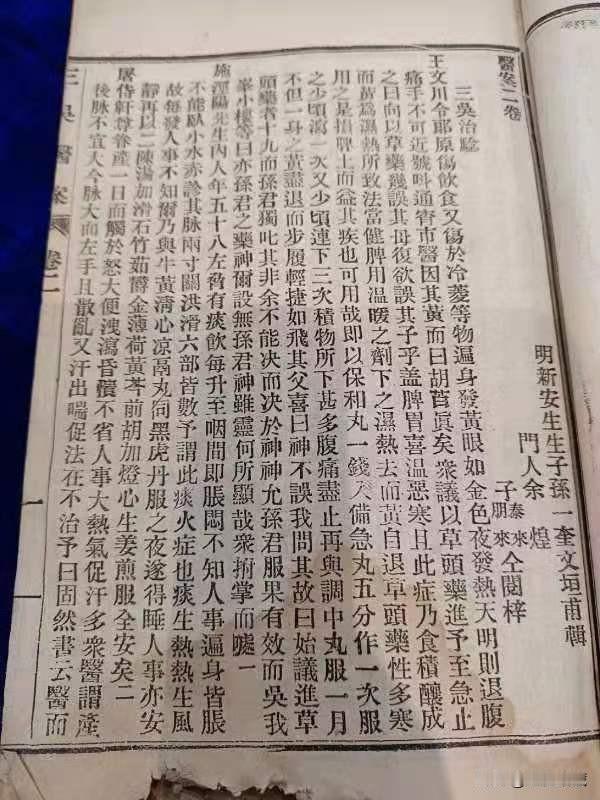 醫案二卷
明新安生生子孫一奎文垣甫輯
門人余煌
子泰來
朋來
仝閱梓
三吳治騐
王文川令郎原傷飲食又傷於冷菱等物遍身發黃眼如金色夜發熱天明則退腹
痛手不可近號呌通宵市醫因其黃而曰胡苩眞矣衆議以草頭藥進予至急止
之曰向以草藥幾誤其母復欲誤其子乎蓋脾胃喜溫惡寒且此症乃食積釀成
而黃爲濕熱所致法當健脾用溫暖之劑下之濕熱去而黃自退草頭藥性多寒
用之是損脾土而益其疾也可用哉即以保和丸一錢入備急丸五分作一次服
之少頃瀉一次又少頃連下三次積物所下甚多腹痛盡止再與調中丸服一月
不但一身之黃盡退而步履輕捷如飛其父喜曰神不誤我問其故曰始議進草
頭藥者十九而孫君獨叱其非余不能决而决於神神允孫君服果有效而吳我
峯小樓等曰亦孫君之藥神爾設無孫君神雖靈何所顯哉衆拊掌而噱一
施涇陽先生內人年五十八左脅有痰飲每升至咽間即脹悶不知人事遍身皆脹
不能臥小水亦澁其脉兩寸關洪滑六部皆數予謂此痰火症也痰生熱熱生風
故每發人事不知爾乃與牛黃淸心凉膈丸同黑虎丹服之夜遂得睡人事亦安
靜再以二陳湯加滑石竹茹欝金薄荷黃芩前胡加燈心生姜煎服全安矣二
屠岱軒尊眷產一日而觸於怒大便洩瀉昏憒不省人事大熱氣促汗多衆醫謂產
後脉不宜大今脉大而左手且散亂又汗出喘促法在不治予曰固然書云醫而
三吳醫案 卷二 一